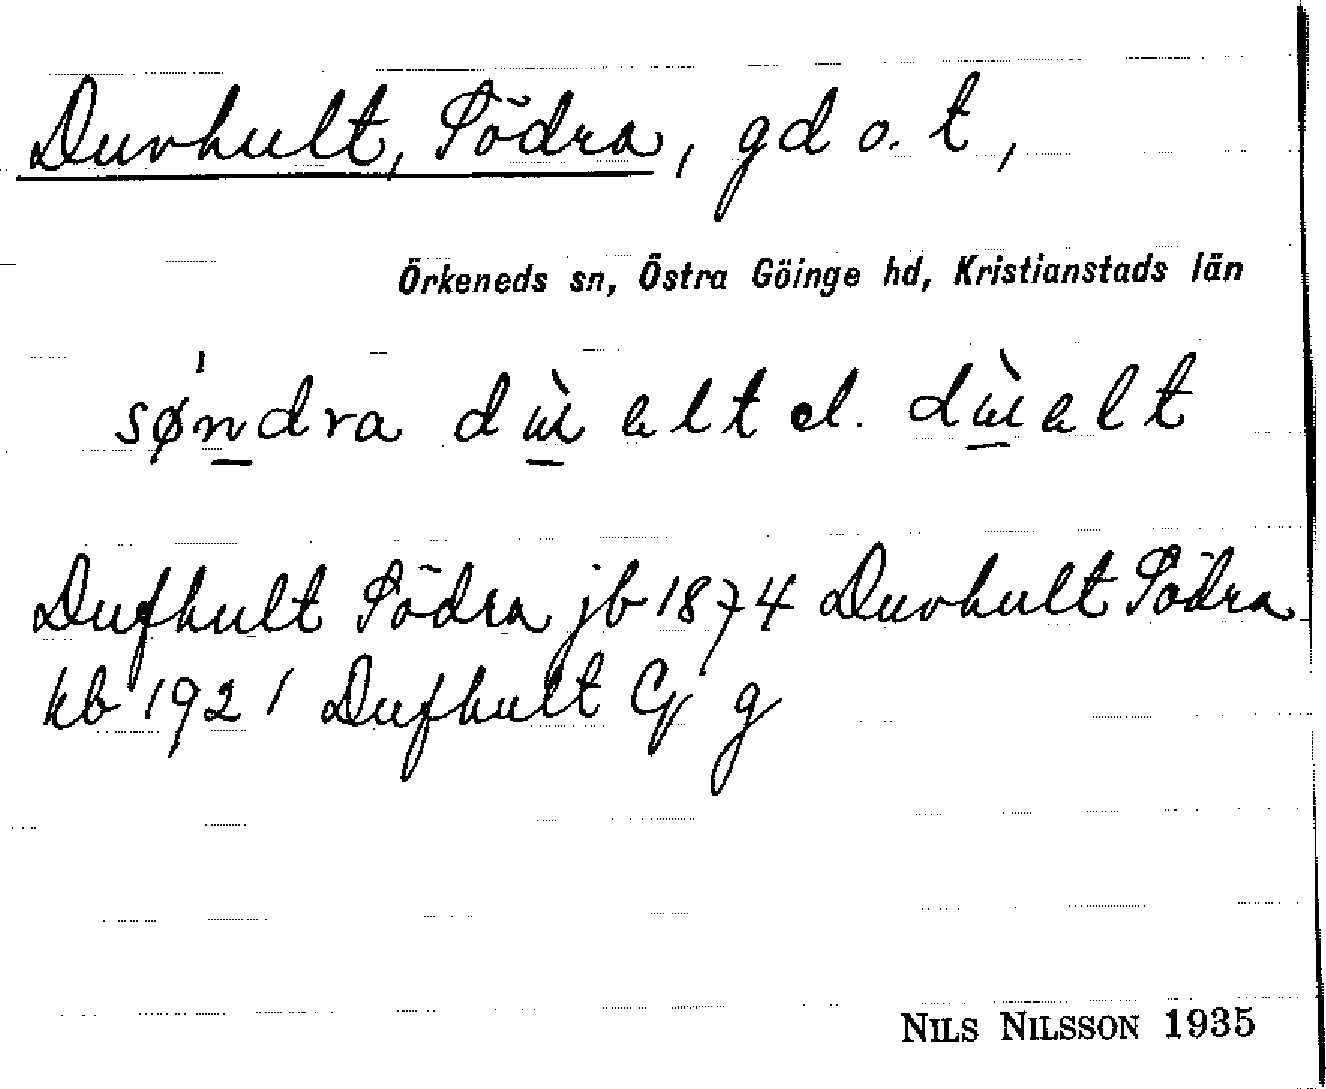 Duvhult, Södra, gd o. t,
Örkeneds sn, Östra Göinge hd, Kristianstads län
søndra dùalt el. dùalt
Dufhult Södra jb 1874 Duvhult Södra
kb 1921 Dufhult Gg
NILS NILSSON 1935